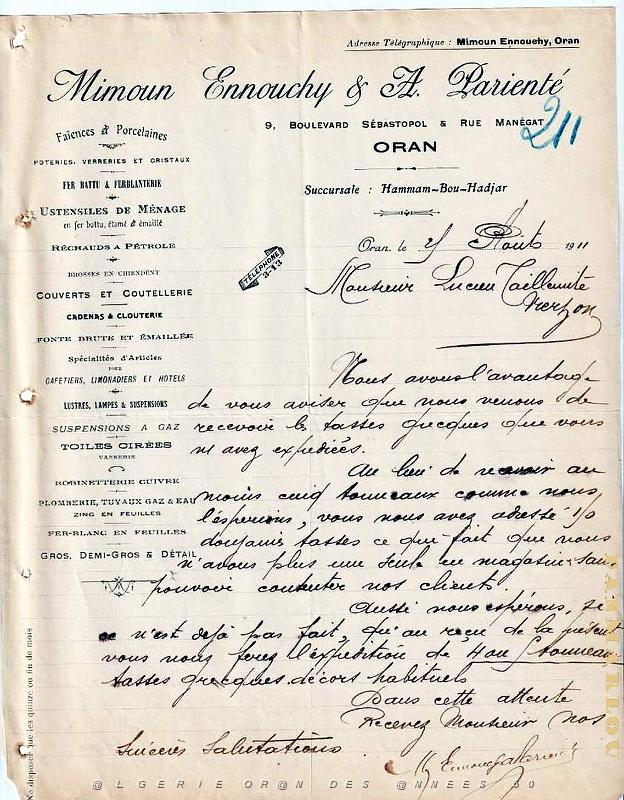 Adresse Télégraphique : Mimoun Ennouchy, Oran
Mimoun Ennouchy & A. Parienté
9, Boulevard Sébastopol & Rue Manégat
211
ORAN
Succursale : Hammam-Bou-Hadjar
Faïences & Porcelaines
Poteries, Verreries et Cristaux
Fer Battu & Ferblanterie
Ustensiles de Ménage
en fer battu, étamé & émaillé
Réchauds a Pétrole
Brosses en Chiendent
Couverts et Coutellerie
Cadenas & Clouterie
Fonte Brute et Émaillée
Spécialités d'Articles
pour
Cafetiers, Limonadiers et Hotels
Lustres, Lampes & Suspensions
Suspensions a Gaz
Toiles Cirées
Vannerie
Robinetterie Cuivre
Plomberie, Tuyaux Gaz & Eau
Zinc en Feuilles
Fer-Blanc en Feuilles
Gros, Demi-Gros & Détail
TÉLÉPHONE
3-13
Oran, le Août 1911
Monsieur Lucien Taillemite
Vierzon
Nous avons l'avantage
de vous aviser que nous venons de
recevoir les tasses grecques que vous
m'avez expédiées.
Au lieu de recevoir au
moins cinq tonneaux comme nous
l'espérions, vous nous avez adressé
douzaine tasses ce qui fait que nous
n'avons plus une seule en magasin sans
pouvoir contenter nos clients.
Aussi nous espérons, si
ce n'est déjà pas fait, qu'au reçu de la présente
vous nous ferez l'expédition de 4 ou 5 tonneaux
tasses grecques décors habituels
Dans cette attente
Recevez Monsieur nos
Sincères Salutations
Ne disposer que les quinze ou fin de mois
@LGERIE OR@N DES @NNEES 50